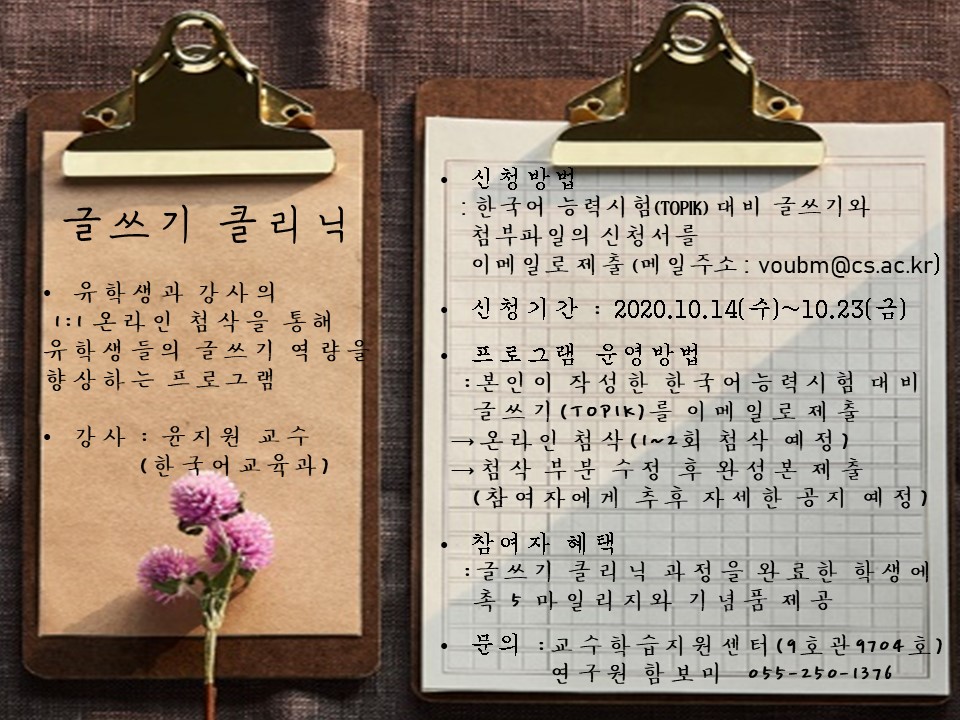 글쓰기 클리닉
• 유학생과 강사의
1:1 온라인 첨삭을 통해
유학생들의 글쓰기 역량을
향상하는 프로그램
• 강사 : 윤지원 교수
(한국어교육과)
• 신청방법
: 한국어 능력시험(TOPIK) 대비 글쓰기와
첨부파일의 신청서를
이메일로 제출 (메일주소 : voubm@cs.ac.kr)
• 신청기간 : 2020.10.14(수)~10.23(금)
• 프로그램 운영방법
: 본인이 작성한 한국어능력시험 대비
글쓰기(TOPIK)를 이메일로 제출
→ 온라인 첨삭(1~2회 첨삭 예정)
→ 첨삭 부분 수정 후 완성본 제출
(참여자에게 추후 자세한 공지 예정)
• 참여자 혜택
: 글쓰기 클리닉 과정을 완료한 학생에
촉 5 마일리지와 기념품 제공
• 문의 : 교수학습지원센터(9호관9704호)
연구원 함보미 055-250-1376